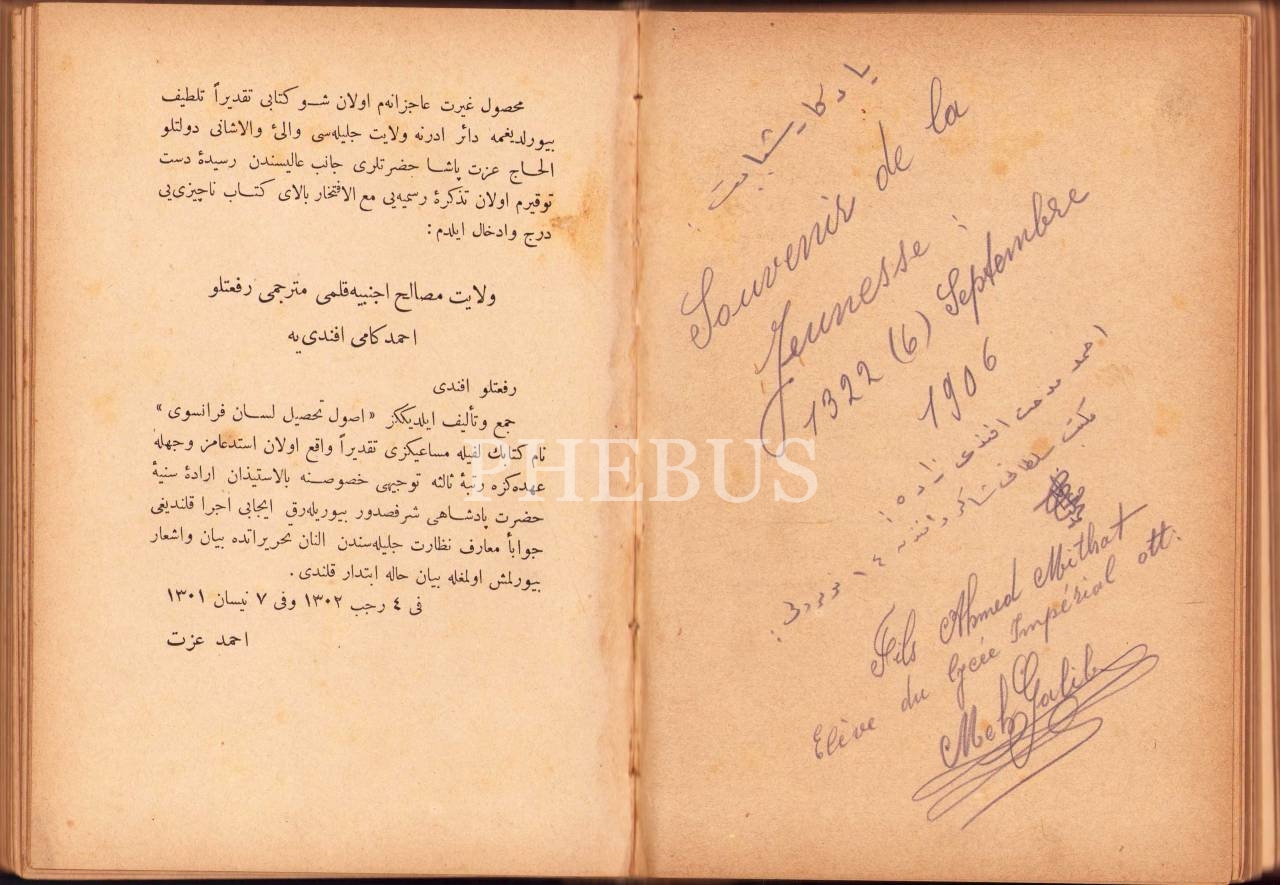 محصول غيرت عاجزانه‌م اولان شو كتابى تقديراً تلطيف
بيورلديغمه دائر ادرنه ولايت جليله‌سى والئ والاشانى دولتلو
الحاج عزت پاشا حضرتلرى جانب عاليسندن رسيدهٔ دست
توقيرم اولان تذكرهٔ رسميه‌يى مع الافتخار بالاى كتاب ناچيزى‌يى
درج وادخال ايلدم :
ولايت مصالح اجنبيه قلمى مترجمى رفعتلو
احمد كامى افندى‌يه
رفعتلو افندى
جمع وتأليف ايلديككز « اصول تحصيل لسان فرانسوى »
نام كتابك لفيله مساعيكزى تقديراً واقع اولان استدعامز وجهله
عهده‌كزه رتبهٔ ثالثه توجيهى خصوصنه بالاستيذان ارادهٔ سنيهٔ
حضرت پادشاهى شرفصدور بيوريله‌رق ايجابى اجرا قلنديغى
جواباً معارف نظارت جليله‌سندن النان تحريراتده بيان واشعار
بيورلمش اولمغله بيان حاله ابتدار قلندى .
فى ٤ رجب ١٣٠٢ وفى ٧ نيسان ١٣٠١
احمد عزت
يادكار شبابت
Souvenir de la
Jeunesse :
1322 (6) Septembre
1906
احمد مدحت افندى زاده
مكتب سلطانى شاكرداننه ١٤
Fils Ahmed Mithat
Elève du lycée Impérial ott.
Meh Galib
PHEBUS